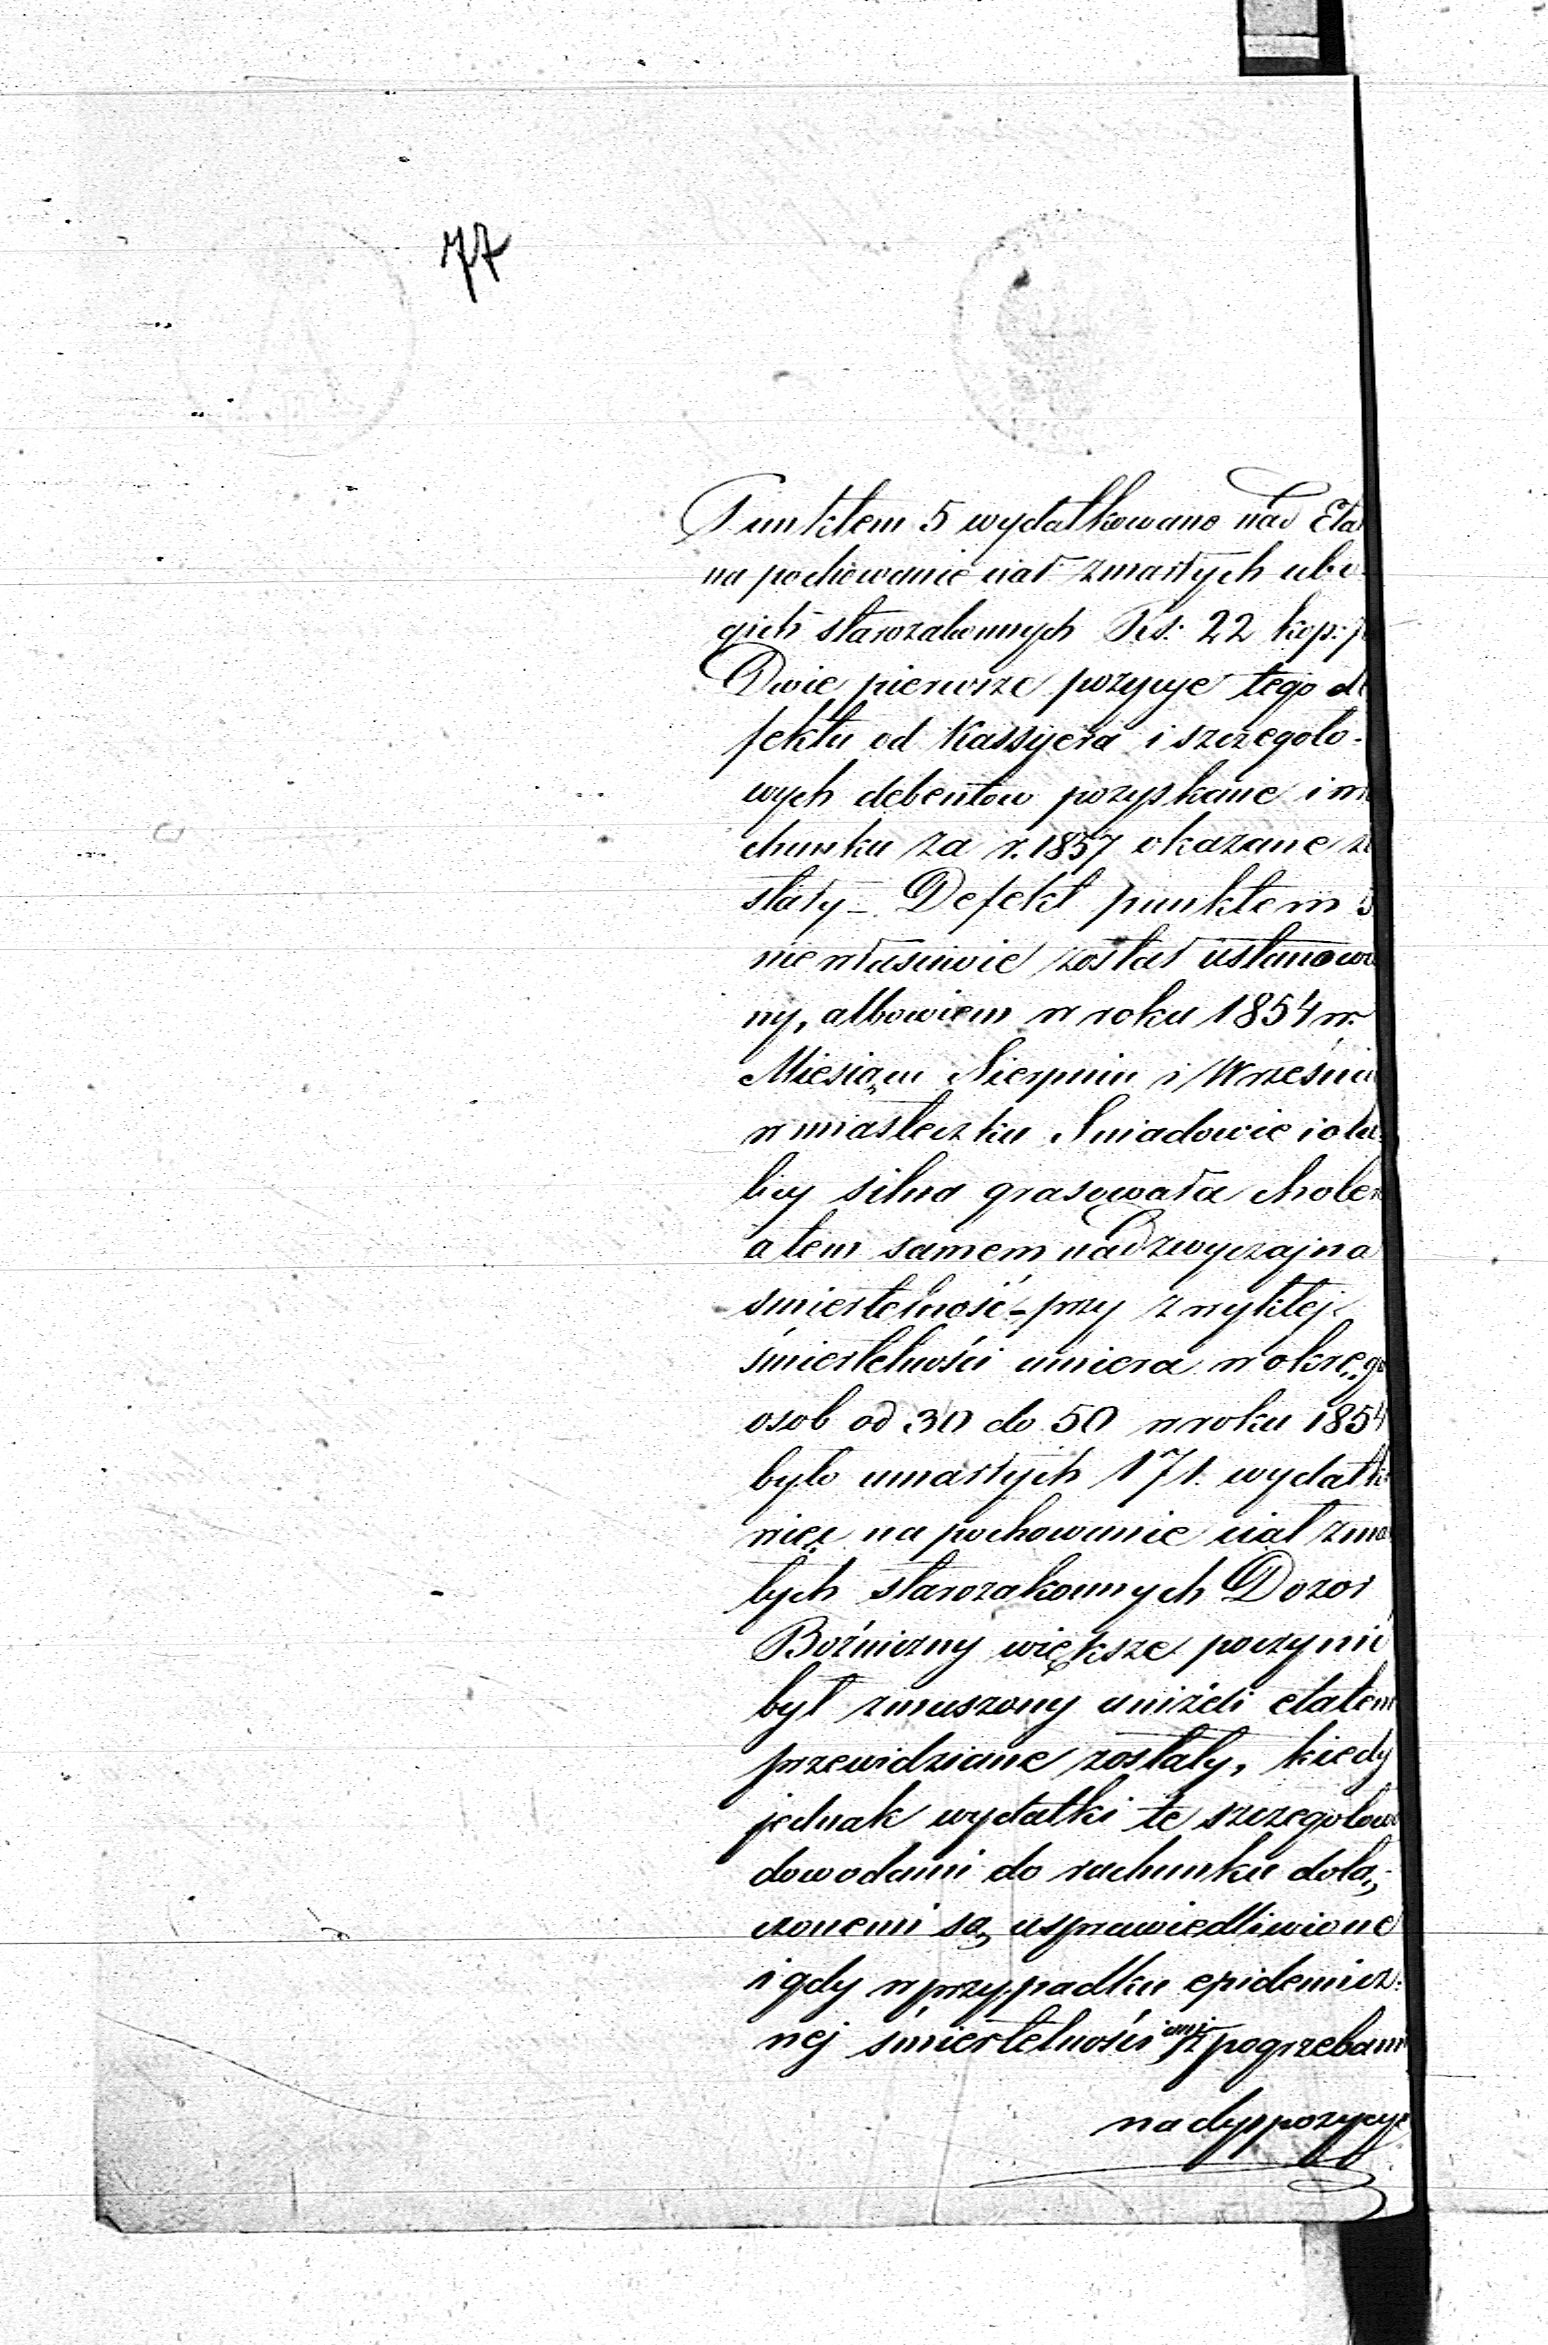 77
Punktem 5 wydatkowano nad Eta
na pochowanie ciał zmarłych ubo-
gich starozakonnych Rs: 22 kop:
Dwie pierwsze pozycye tego de
fektu od Kassyera i szczegóło-
wych debentów pozyskane i
chunku za r. 1857 okazane zo
stały – Defekt punktem 5
niewłaściwie został ustanowio
ny, albowiem w roku 1854 w
Miesiącu Sierpniu i Wrześniu
w miasteczku Sniadowie i oko
licy silna grasowała choler
a tem samem nadzwyczajna
śmiertelność – przy zwykłej
śmiertelności umiera w okręgu
osob od 30 do 50 w roku 1854
było umarłych 171. wydatki
więc na pochowanie ciał zmar
łych starozakonnych Dozor
Bożniczny większe poczynić
był zmuszony aniżeli etatem
przewidziane zostały, kiedy
jednak wydatki te szczegółowe
dowodami do rachunku dołą-
czonemi są usprawiedliwione
i gdy w przypadku epidemicz-
nej śmiertelności z pogrzebami
na dyspozycye